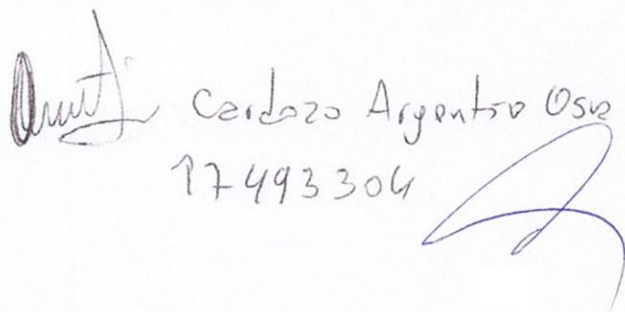 Cardozo Argentino Osva
17493304